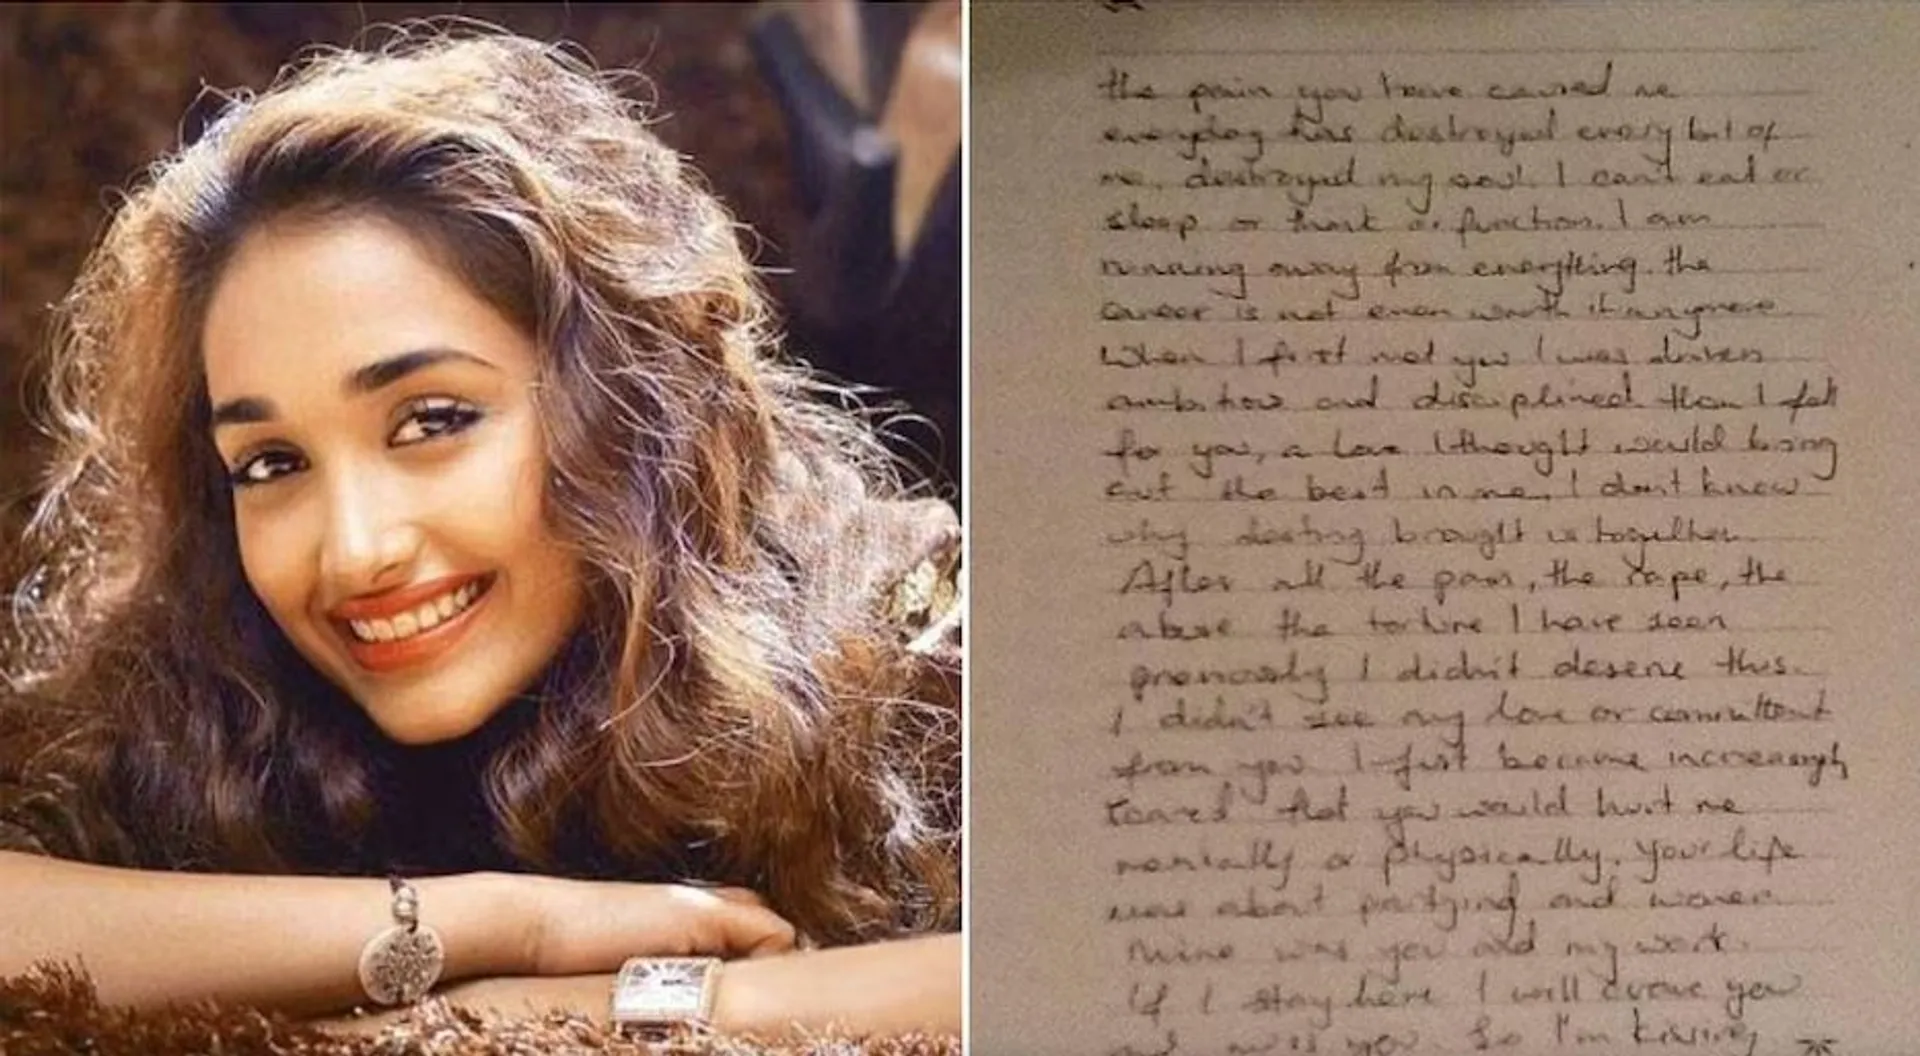 the pain you have caused me
everyday has destroyed every bit of
me, destroyed my soul. I can't eat or
sleep or think or function. I am
running away from everything. the
career is not even worth it anymore
When I first met you I was driven
ambitious and disciplined. then I fell
for you, a love I thought would bring
out the best in me. I don't know
why destiny brought us together
After all the pain, the rape, the
abuse the torture I have seen
previously I didn't deserve this.
I didn't see any love or commitment
from you I just became increasingly
scared that you would hurt me
mentally or physically. Your life
was about partying and women
Mine was you and my work.
If I stay here I will crave you
and miss you. So I'm kissing